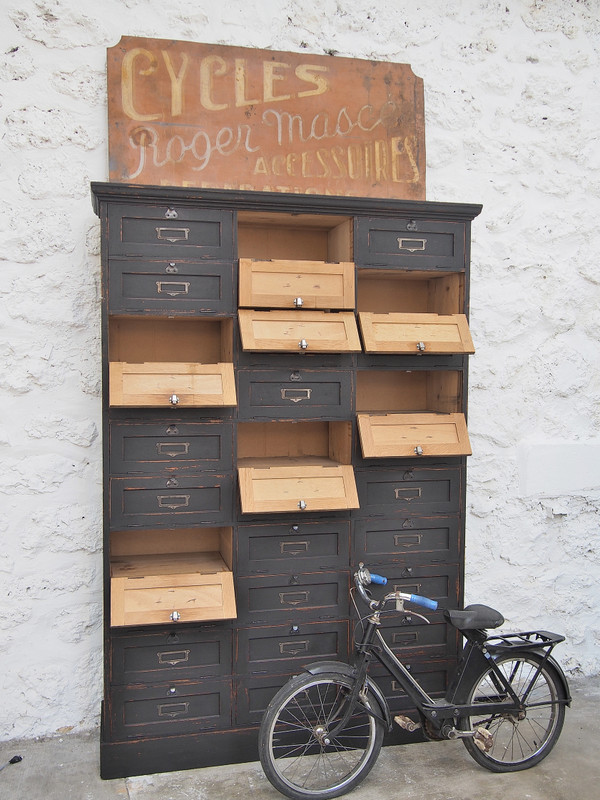 CYCLES
Roger Masc
ACCESSOIRES